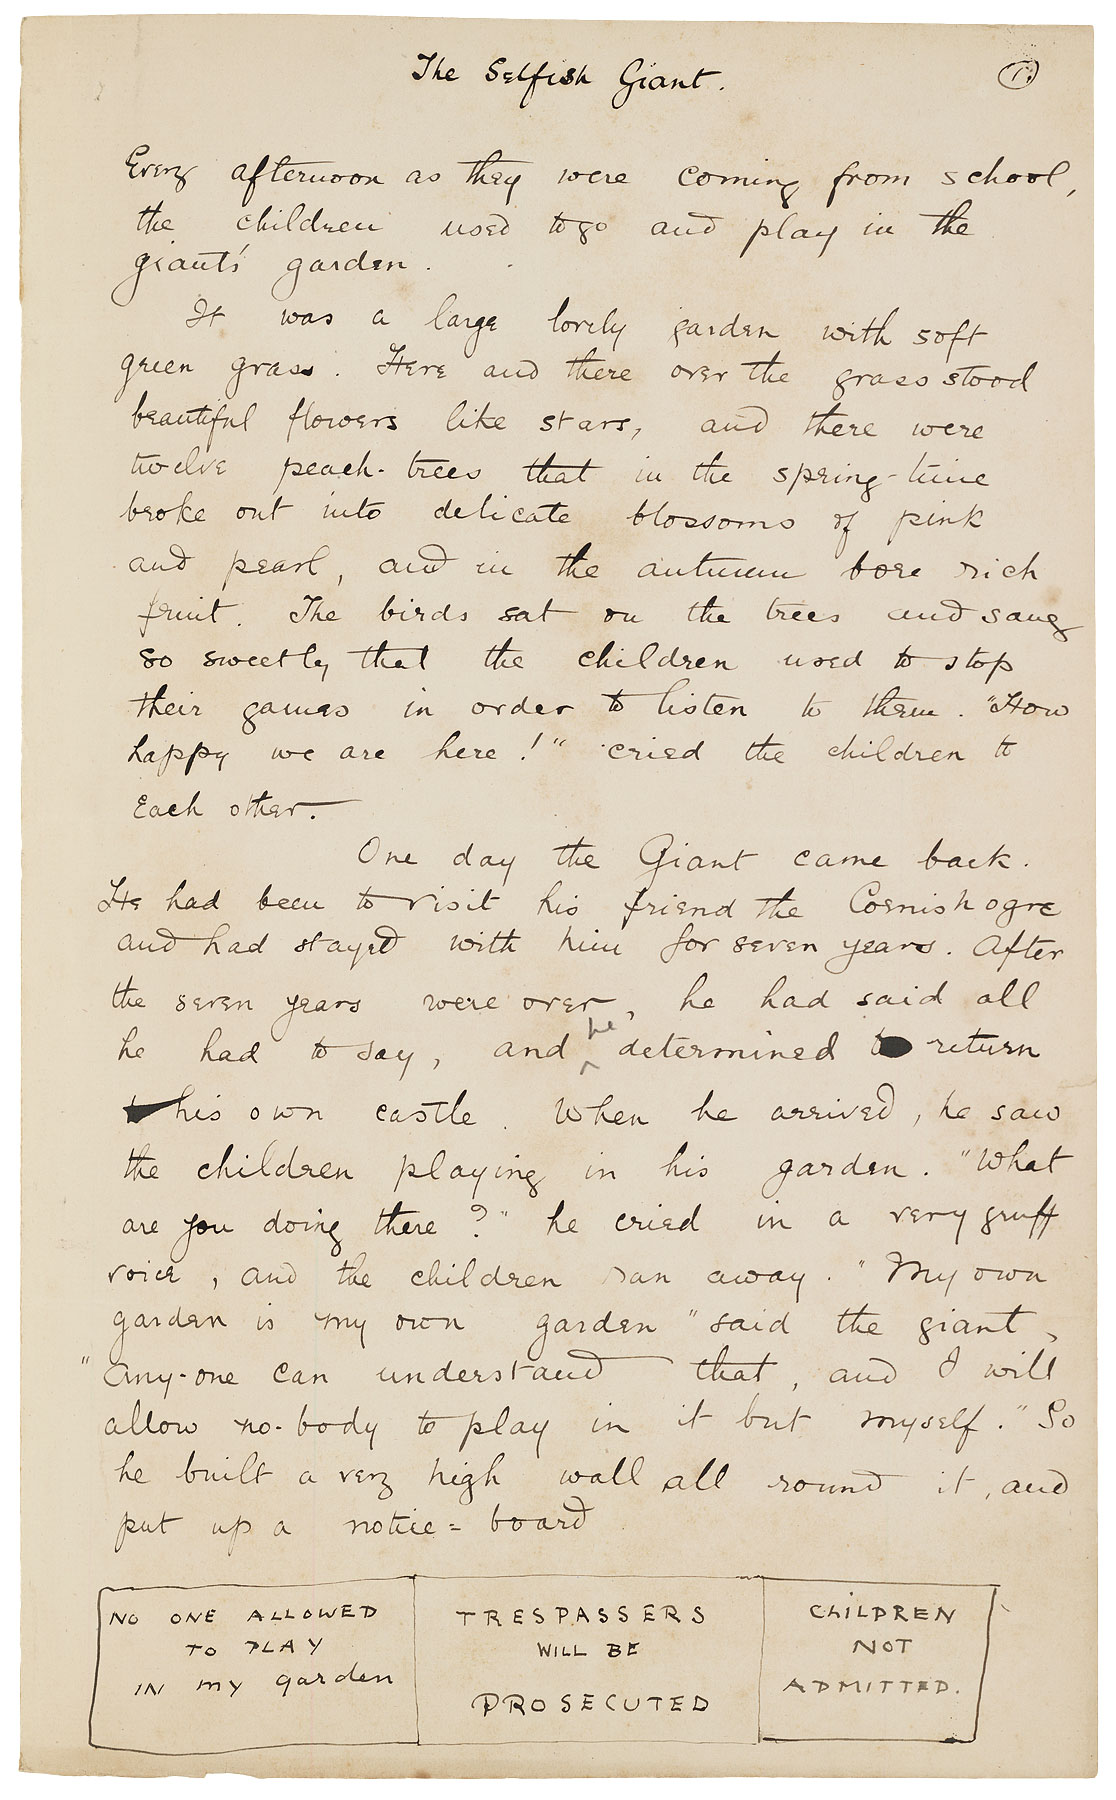 The Selfish Giant.
1.
Every afternoon as they were coming from school,
the children used to go and play in the
giant's garden.
It was a large lovely garden with soft
green grass. Here and there over the grass stood
beautiful flowers like stars, and there were
twelve peach-trees that in the spring-time
broke out into delicate blossoms of pink
and pearl, and in the autumn bore rich
fruit. The birds sat on the trees and sang
so sweetly that the children used to stop
their games in order to listen to them. "How
happy we are here!" cried the children to
each other.
One day the Giant came back.
He had been to visit his friend the Cornish ogre
and had stayed with him for seven years. After
the seven years were over, he had said all
he had to say, and he determined to return
to his own castle. When he arrived, he saw
the children playing in his garden. "What
are you doing there?" he cried in a very gruff
voice, and the children ran away. "My own
garden is my own garden" said the giant,
"any-one can understand that, and I will
allow no-body to play in it but myself." So
he built a very high wall all round it, and
put up a notice=board
NO ONE ALLOWED
TO PLAY
IN MY garden
TRESPASSERS
WILL BE
PROSECUTED
CHILDREN
NOT
ADMITTED.